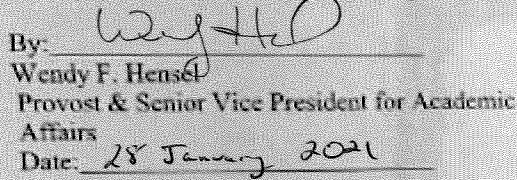 By:
Wendy F. Hensel
Provost & Senior Vice President for Academic
Affairs
Date: 28 January 2021